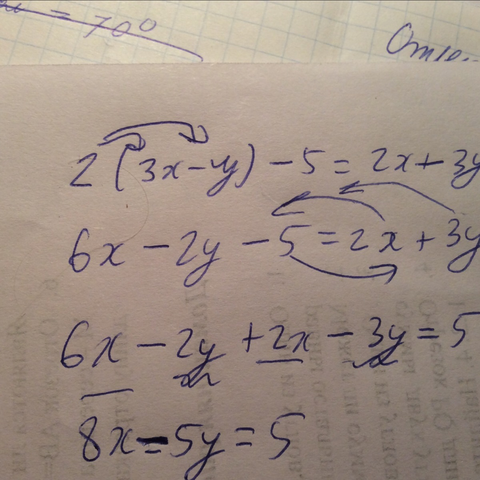 = 70°
2(3x-y)-5=2x+3y
6x-2y-5=2x+3y
6x-2y+2x-3y=5
8x-5y=5